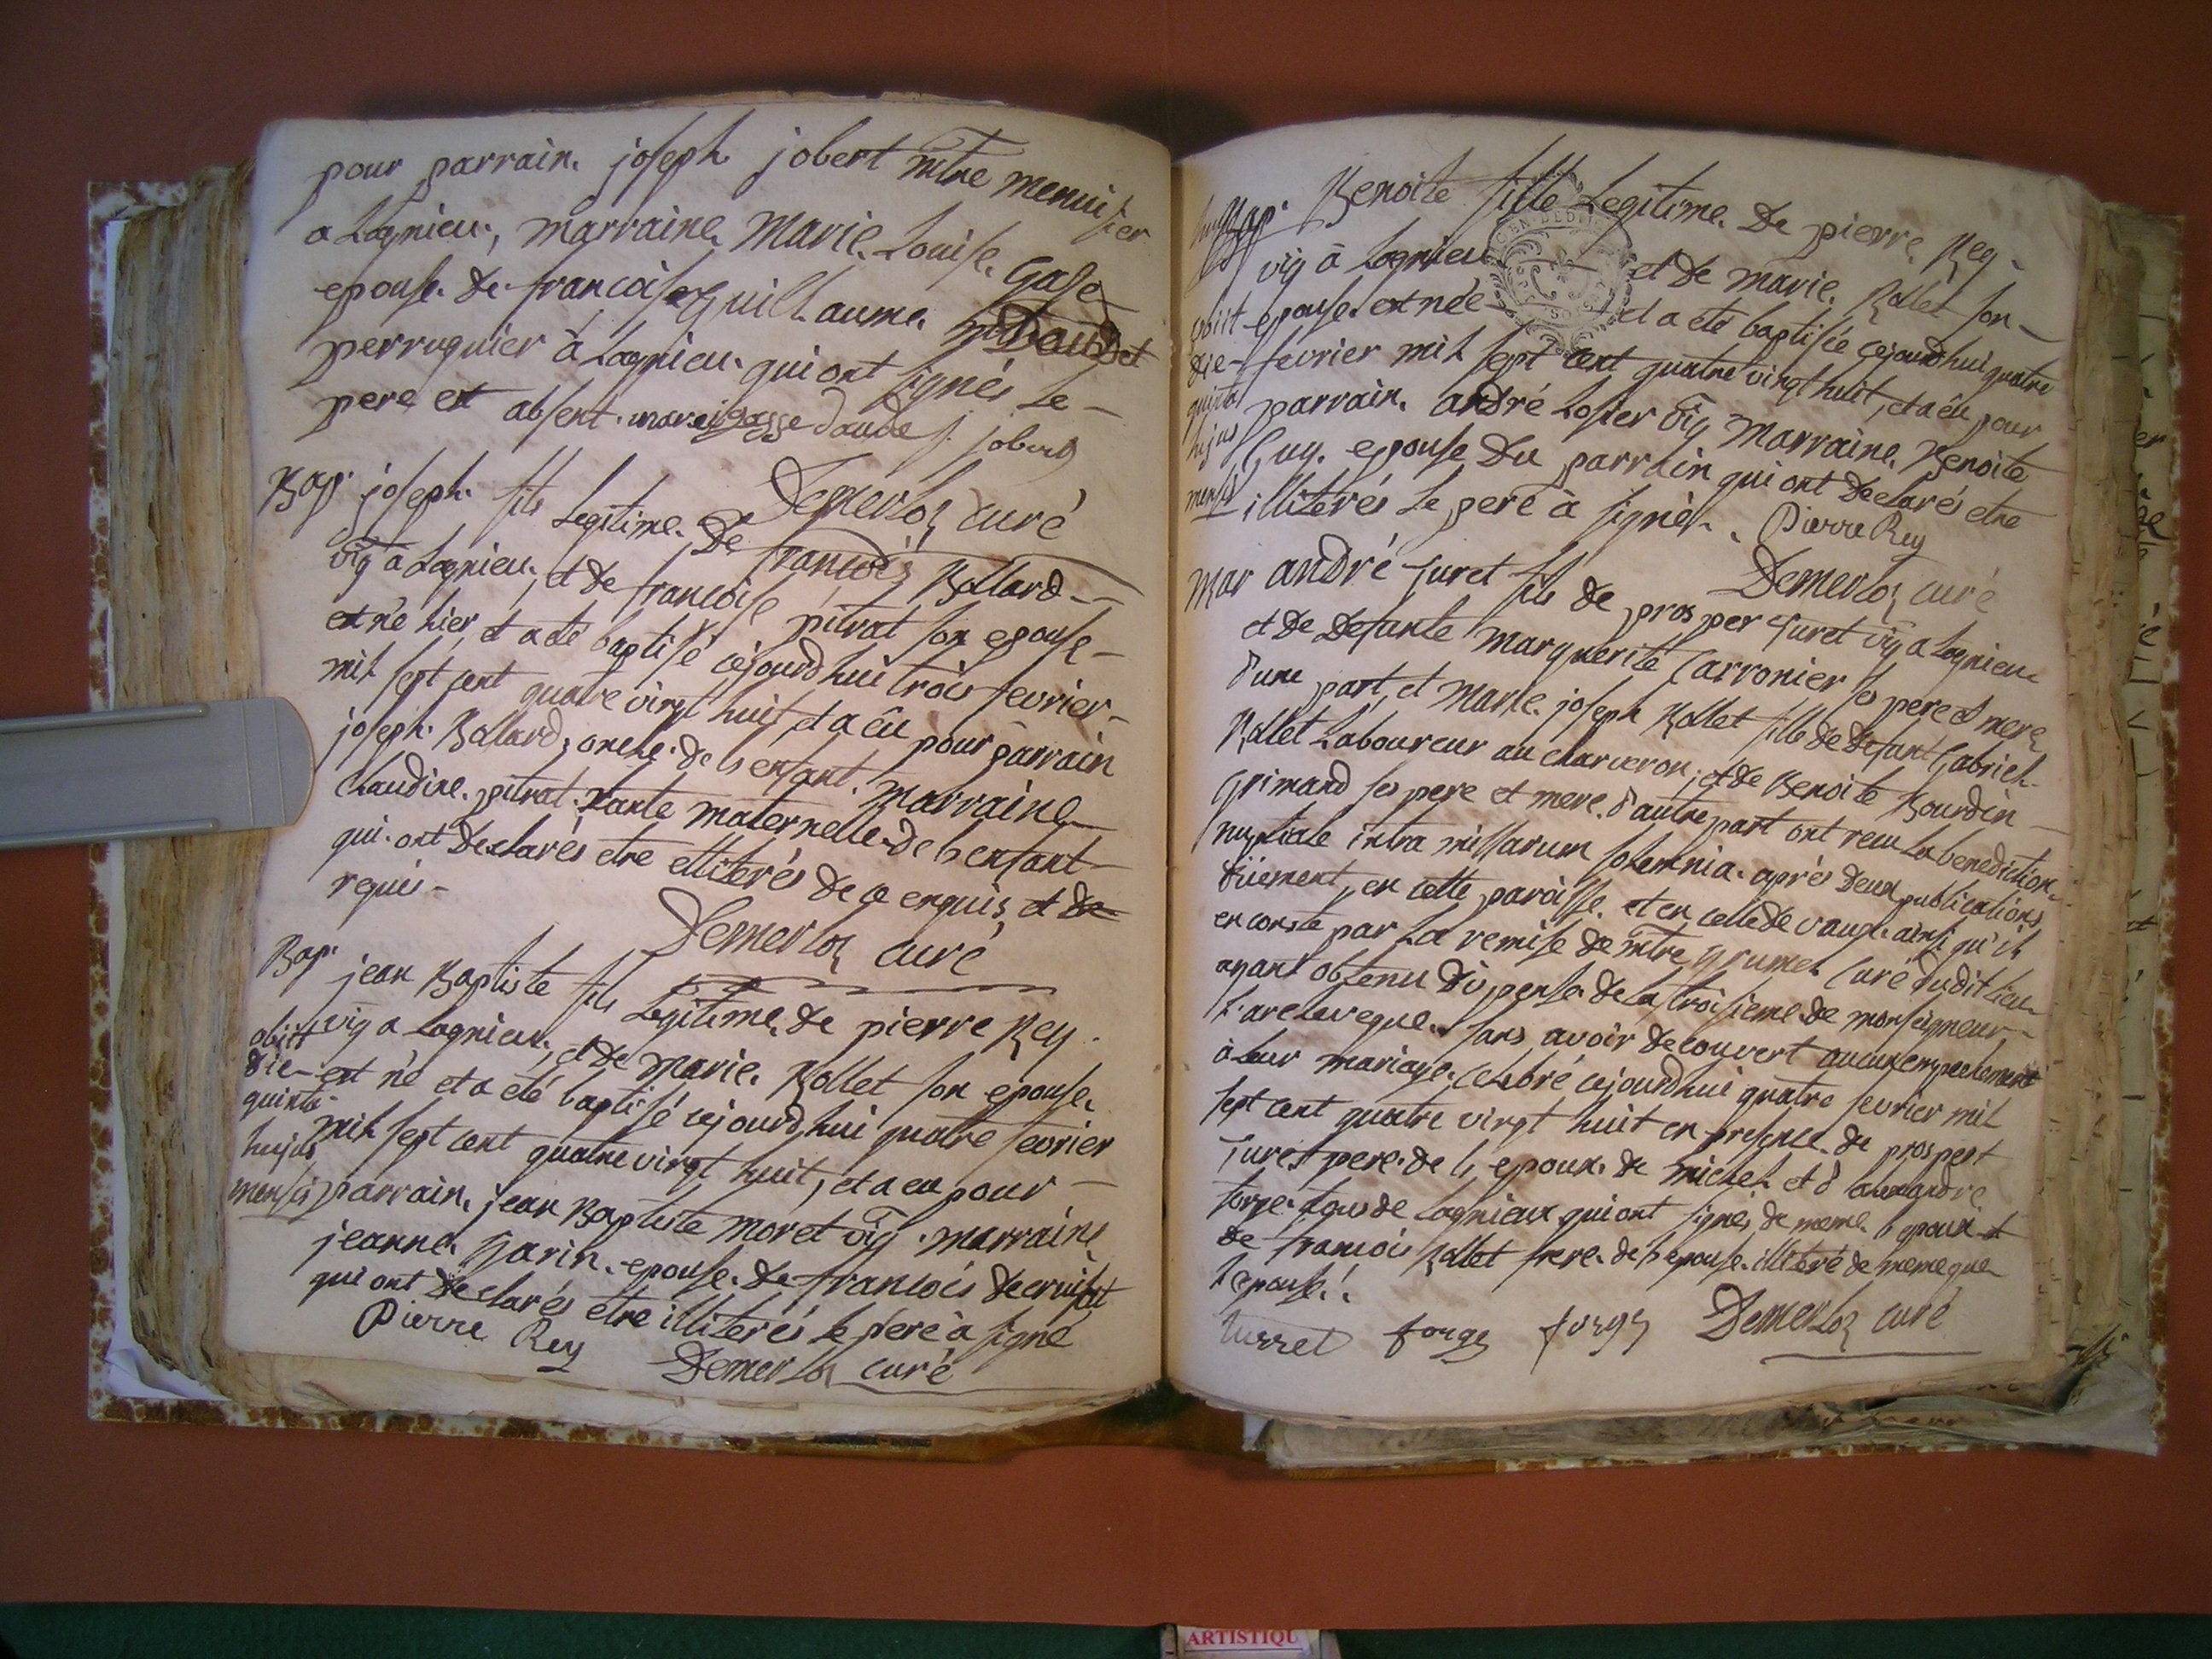 pour parrain joseph jobert mtre menuisier
a Lagnieu, marraine Marie Louise Gasse
epouse de francois Guillaume Daudet
perruquier à Lagnieu qui ont signés le
pere est absent. marei gasse daude j. jobert
Demerloz curé
Bap. joseph fils Legitime de francois Ballard
vig a Lagnieu, et de francoise pitrat son epouse
est né hier, et a été baptisé cejourdhui trois fevrier
mil sept cent quatre vingt huit et a êu pour parrain
joseph Ballard, oncle de l'enfant. marraine
Claudine pitrat tante maternelle de l'enfant
qui ont declarés etre illiterés de ce enquis, et de
requis
Demerloz curé
Bap. jean Baptiste fils Legitime de pierre Rey
vig a Lagnieu, et de Marie Rollet son epouse
est né et a été baptisé cejourd'hui quatre fevrier
mil sept cent quatre vingt huit, et a eu pour
parrain jean Baptiste Moret vig. marraine
jeanne Garin epouse de francois decruisat
qui ont declarés etre illiterés le pere à signé
Pierre Rey
Demerloz curé
obiit
die
quinta
hujus
mensis
Bap. Benoite fille Legitime de pierre Rey
vig à Lagnieu et de marie Rollet son
epouse est née et a été baptisée cejourdhui quatre
fevrier mil sept cent quatre vingt huit, et a êu pour
parrain andré Losier vig marraine Benoite
Guy epouse du parrain qui ont declarés etre
illiterés le pere à signé. Pierre Rey
Demerloz curé
obiit
die
quinta
hujus
mensis
Mar andré juret fils de prosper juret vig a Lagnieu
et de defunte Marguerite Carronier ses pere et mere
d'une part, et Marie joseph Rollet fille de defunt Gabriel
Rollet Laboureur au charveron, et de Benoite Bourdin
Grimand ses pere et mere d'autre part ont recu la benediction
nuptiale intra missarum solemnia aprés deux publications
düement, en cette paroisse et en celle de vaux ainsi qu'il
en conste par la remise de mtre grumel Curé dudit lieu
ayant obtenu dispense de la troisieme de monseigneur
l'archeveque sans avoir decouvert aucun empechement
à leur mariage, celebré cejourdhui quatre fevrier mil
sept cent quatre vingt huit en presence de prospert
juret pere de l'epoux de michel et d'alexandre
forge tous de Lagnieux qui ont signés de meme l'epoux et
de francois Rollet frere de l'epouse illiteré de meme que
l'epouse.
jurret forge forge Demerloz curé
ARTISTIQU